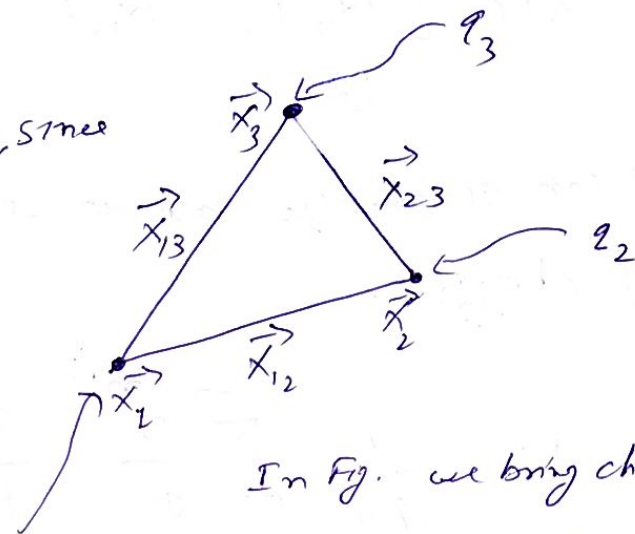 q₃
, since
x⃗₃
x⃗₂₃
x⃗₁₃
q₂
x⃗₂
x⃗₁₂
x⃗₁
In Fig. we bring ch